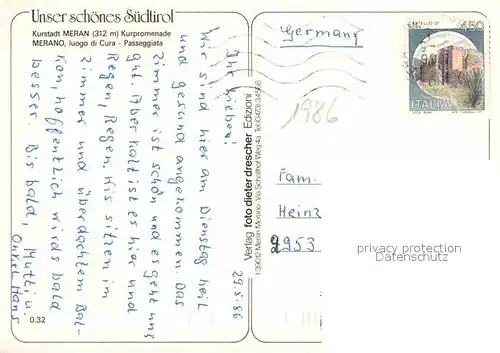 Unser schönes Südtirol
Kurstadt MERAN (312 m) Kurpromenade
MERANO, luogo di Cura - Passeggiata
29.5.86
Ihr Lieben!
Wir sind hier am Dienstag heil
und gesund angekommen. Das
Zimmer ist schön und es geht uns
gut. Aber kalt ist es hier und
Regen, Regen. Wir sitzen im
Zimmer und überdachtem Bal-
kon, hoffentlich wirds bald
besser. Bis bald, Mutti u.
Onkel Hans
0.32
Verlag foto dieter drescher Edizioni
I-39012 Meran-Merano - Via Schaffhof Weg 4a
Germany
1986
CASTELLO DI
450
ITALIA
Fam.
Heinz
2953
privacy protection
Datenschutz